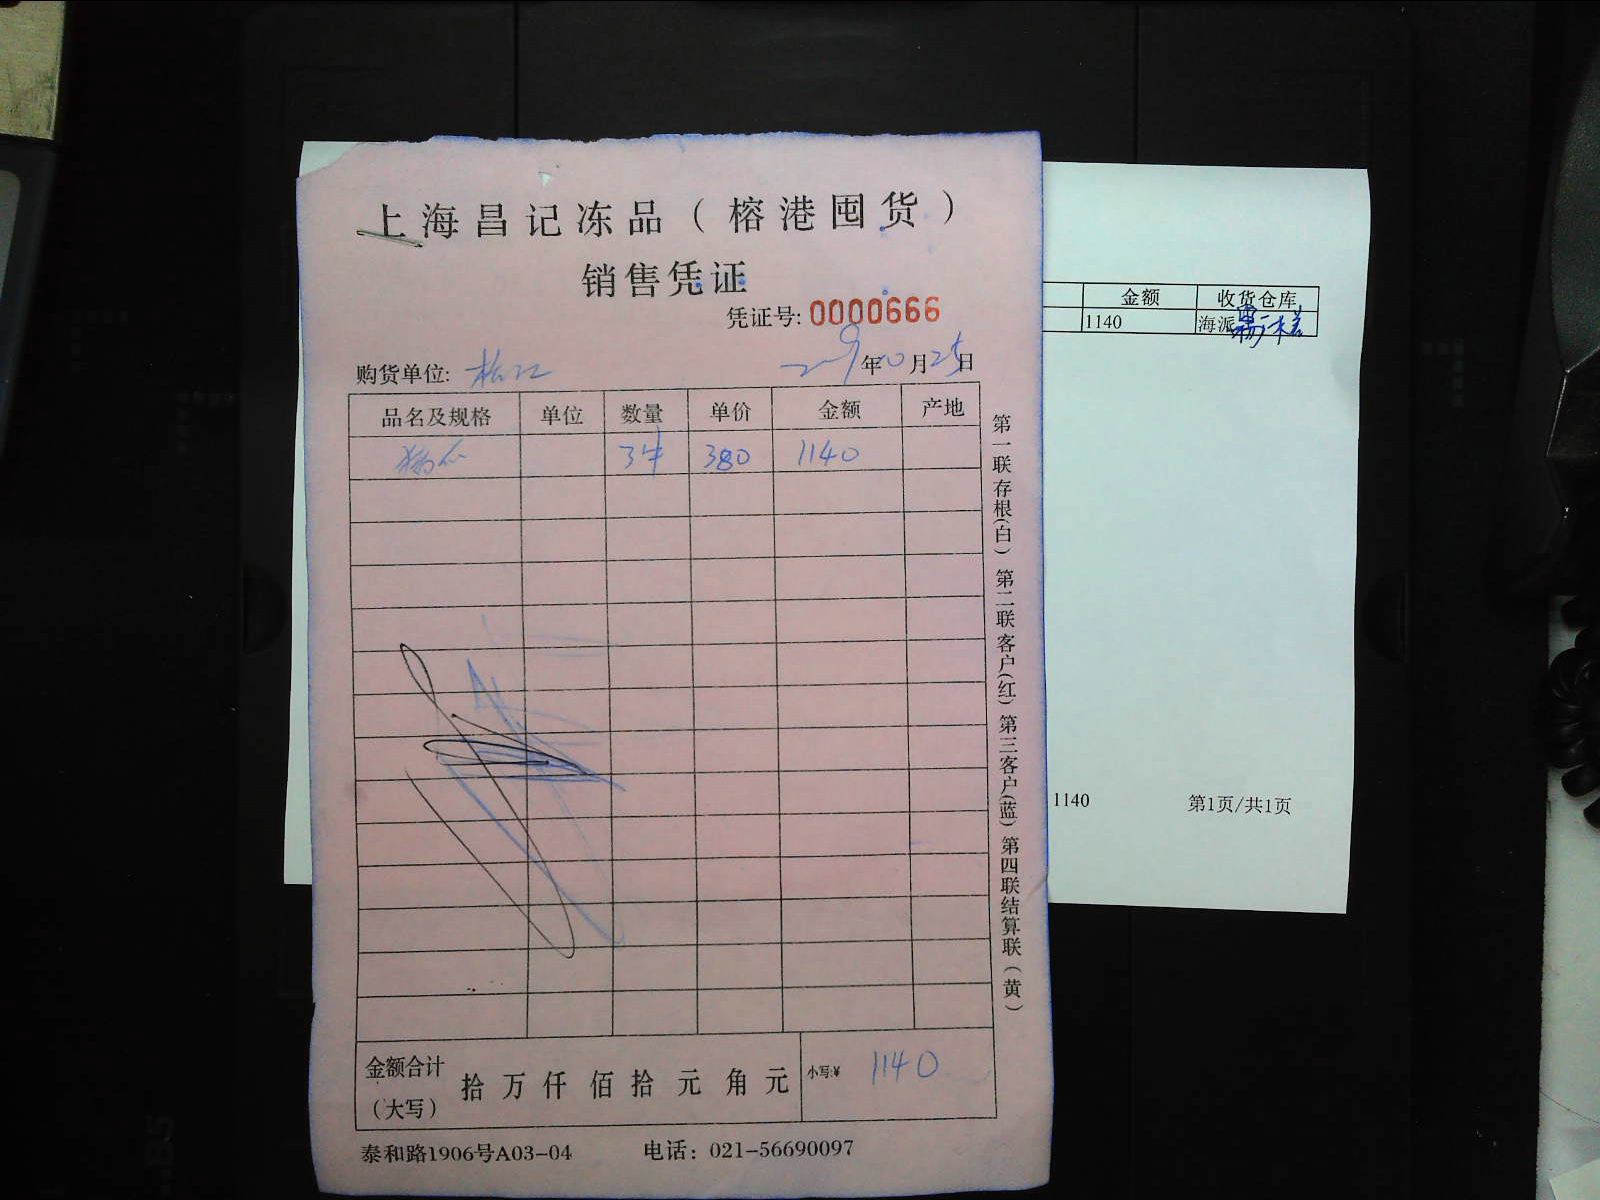 上海昌记冻品（榕港囤货）
销售凭证
凭证号: 0000666
购货单位: 松江 年10月25日
品名及规格 单位 数量 单价 金额 产地
3件 380 1140
金额合计（大写） 拾 万 仟 佰 拾 元 角 元 小写:¥ 1140
泰和路1906号A03-04 电话：021-56690097
第一联存根(白) 第二联客户(红) 第三客户(蓝) 第四联结算联(黄)
金额 收货仓库
1140 海派
1140 第1页/共1页